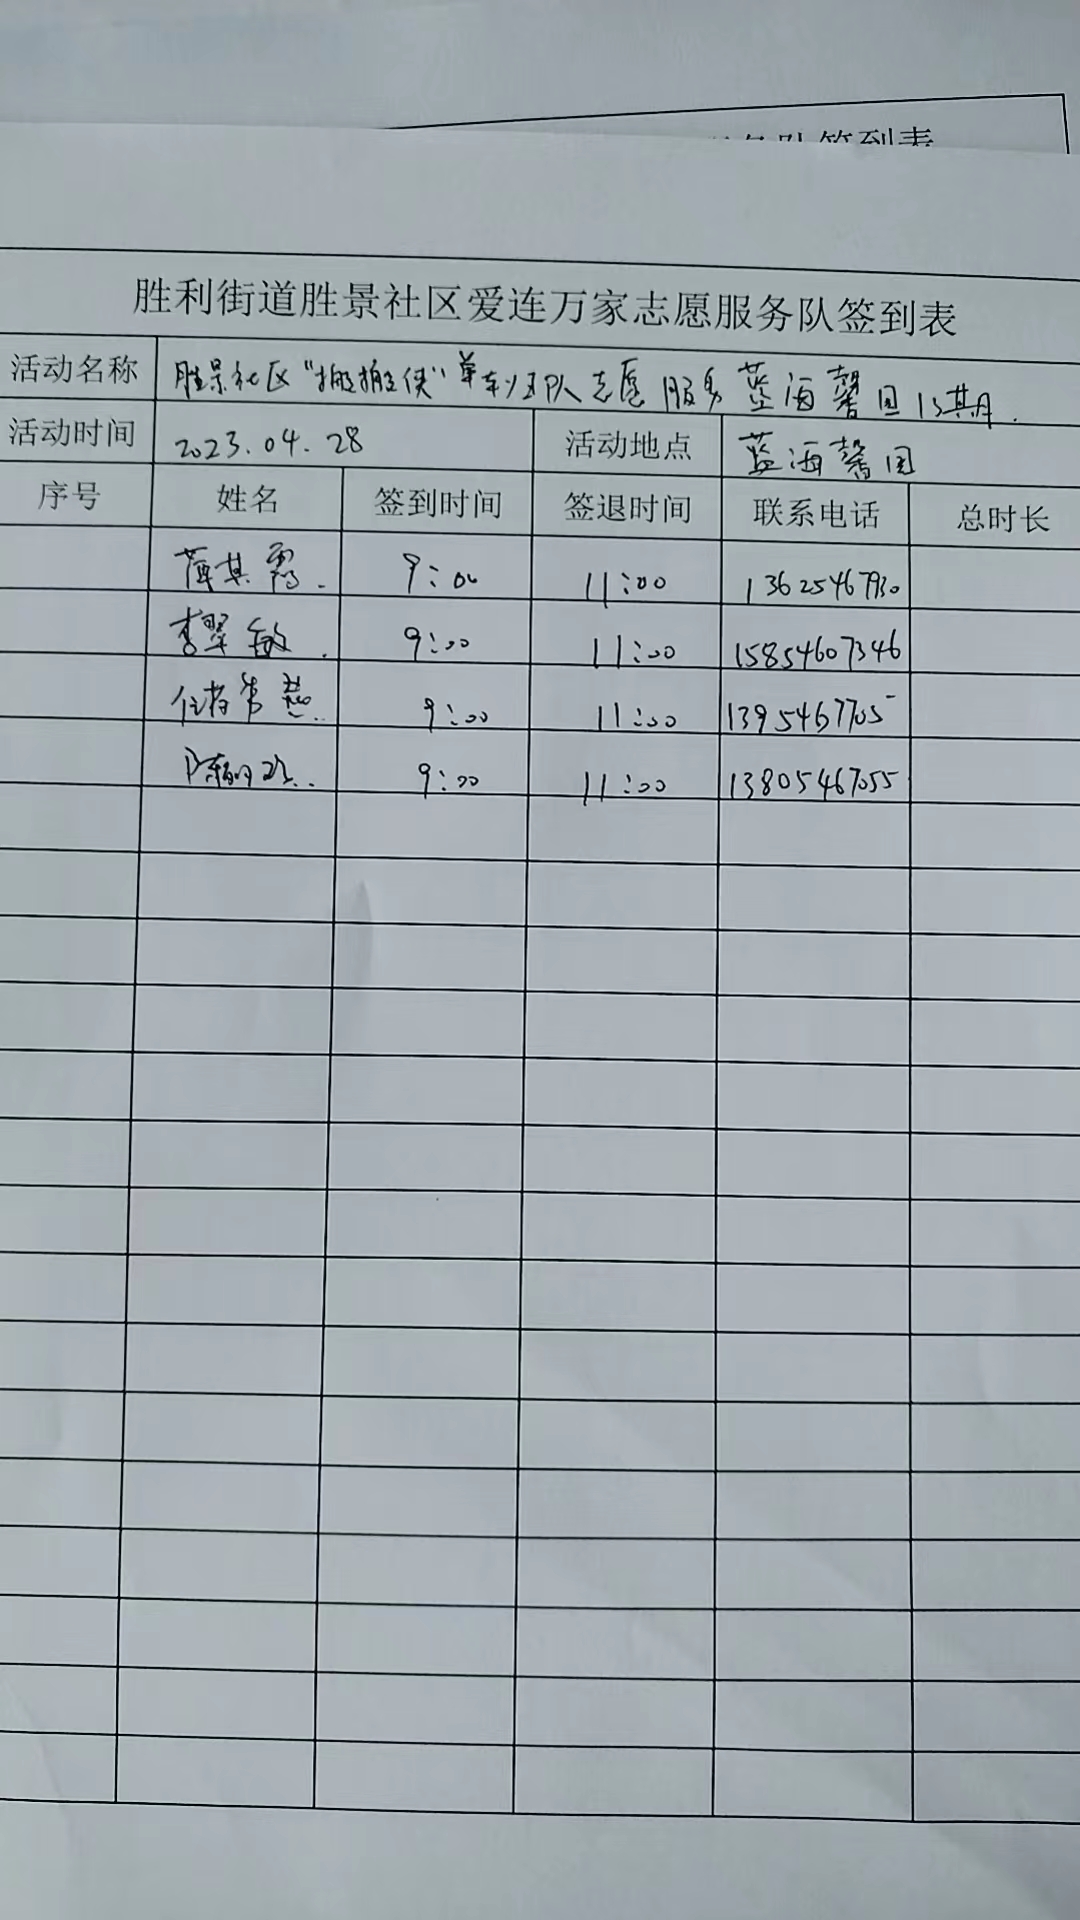 务队签到表
胜利街道胜景社区爱连万家志愿服务队签到表
活动名称 胜景社区"搬搬侠"单车小分队志愿服务蓝海馨园13期.
活动时间 2023.04.28 活动地点 蓝海馨园
序号 姓名 签到时间 签退时间 联系电话 总时长
薛其霞. 9:00 11:00 13625467930
李翠敏. 9:00 11:00 15854607346
9:00 11:00 13954677055
9:00 11:00 13805467055